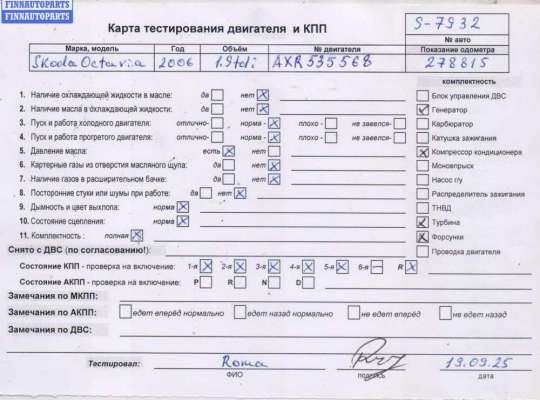 FINNAUTOPARTS
FINNAUTOPARTS
FINNAUTOPARTS
Карта тестирования двигателя и КПП
S-7932
№ авто
Марка, модель Год Объём № двигателя Показание одометра
Skoda Octavia 2006 1.9tdi AXR 535568 278815
комплектность
1. Наличие охлаждающей жидкости в масле: да нет X
2. Наличие масла в охлаждающей жидкости: да нет X
3. Пуск и работа холодного двигателя: отлично- норма - X плохо - не завелся-
4. Пуск и работа прогретого двигателя: отлично- норма - X плохо - не завелся-
5. Давление масла: есть X нет
6. Картерные газы из отверстия масляного щупа: да нет X
7. Наличие газов в расширительном бачке: да нет X
8. Посторонние стуки или шумы при работе: да нет X
9. Дымность и цвет выхлопа: норма X
10. Состояние сцепления: норма X
11. Комплектность : полная X
Блок управления ДВС
Генератор
Карбюратор
Катушка зажигания
Компрессор кондиционера
Моновпрыск
Насос г/у
Распределитель зажигания
ТНВД
Турбина
Форсунки
Проводка двигателя
Снято с ДВС (по согласованию!):
Состояние КПП - проверка на включение: 1-я X 2-я X 3-я X 4-я X 5-я X 6-я — R X
Состояние АКПП - проверка на включение: P R N D
Замечания по МКПП:
Замечания по АКПП: едет вперёд нормально едет назад нормально не едет вперед не едет назад
Замечания по ДВС:
Тестировал: Roma 19.09.25
ФИО подпись дата